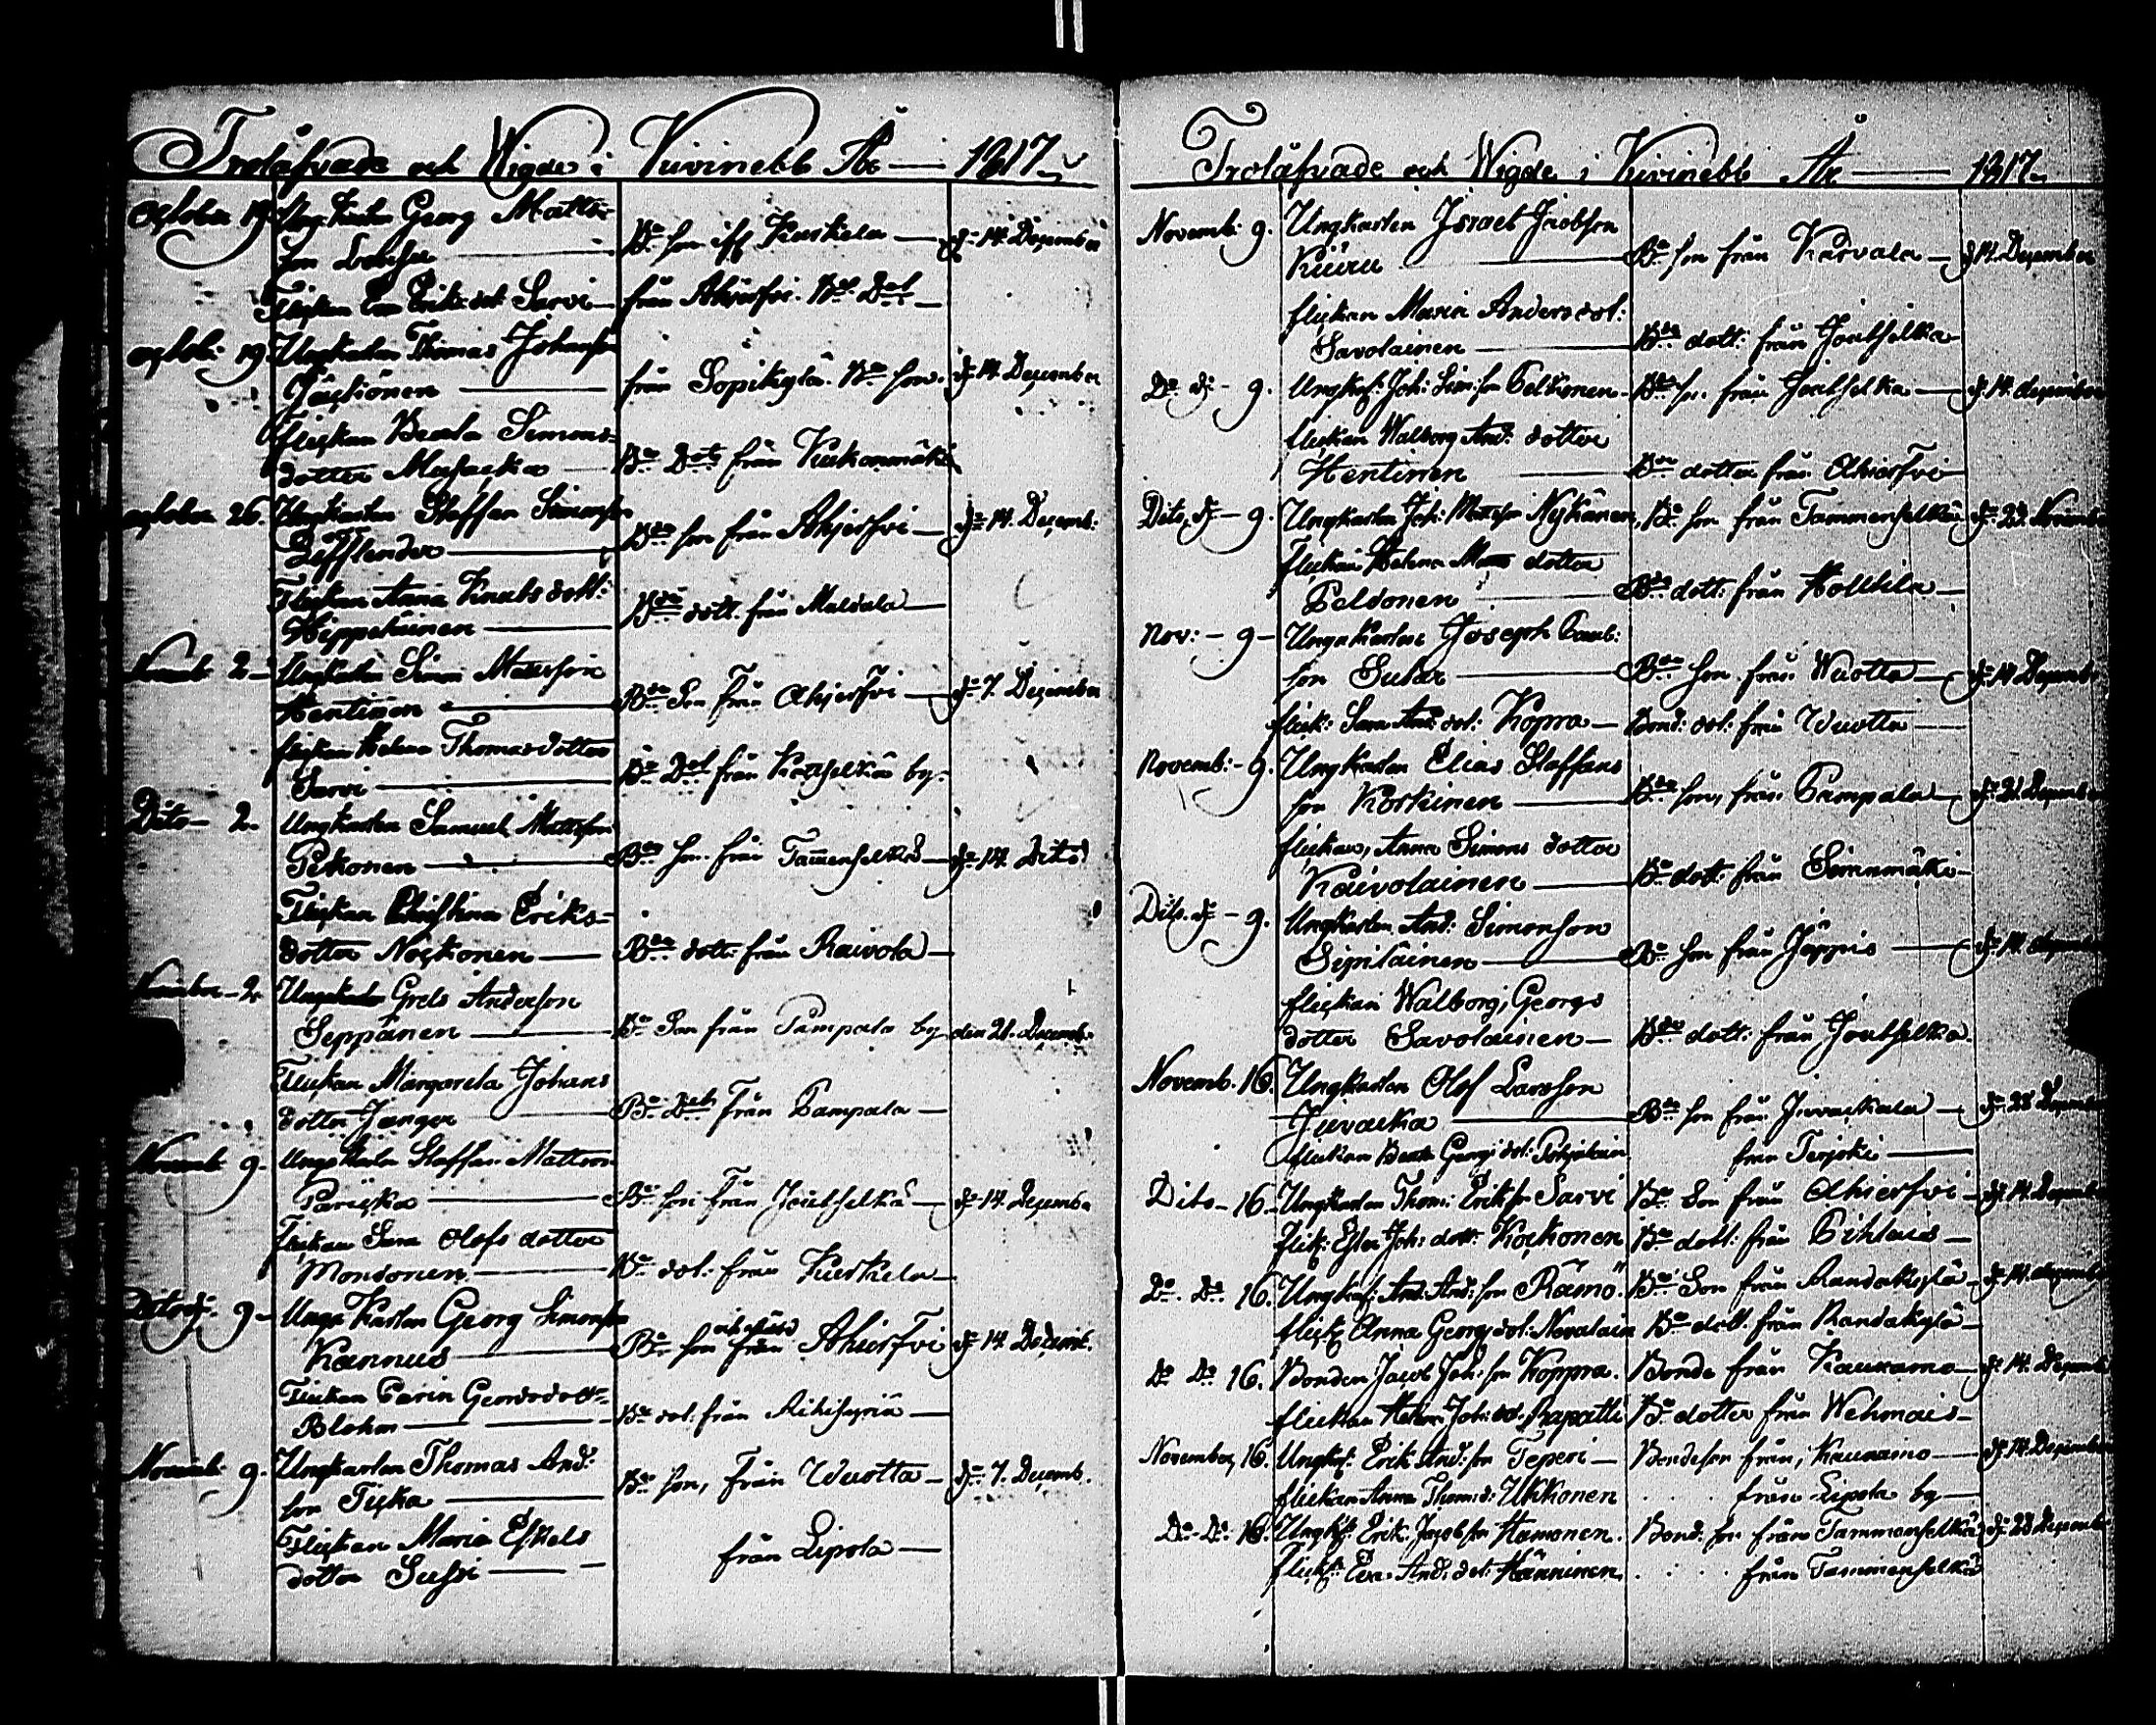 Trolåfvade och Wigde i Kivinebb År — 1817
October 19. Ungkarlen Georg Matts-
son
Flickan Eva Eriks dot. Sarvi — från Akjerfvi. Bde Dot. —
octob: 19 Ungkarlen Thomas Johansson
Jäskönen — från Sopikylä. Bde son. d: 14 December
Flickan Beata Simons-
dotter Musacka — Bde Dotr från Kukonmäki
october 26. Ungkarlen Staffan Simonson
Zefflender — Bde son från Akjerfvi — d: 14. Decemb:
Flickan Anna Knuts dott:
Hippeläinen — Bde dott. från Maldala —
Novemb 2 — Ungkarlen Simon Matsson
Hentinen — Bde Son från Akjerfvi — d: 7. December
flickan Helena Thomasdotter
Sarvi — Bde Dot från Kraselkä by.
Dito — 2. Ungkarlen Samuel Mattsson
Pekonen — Bde son från Tammenselkä — d: 14. Dito
Flickan Christina Eriks-
dotter Nockonen — Bde dott: från Raivola —
November — 2. Ungkarlen Grels Anderson
Seppänen — Bde Son från Pampala by den 21. Decemb:
Flickan Margareta Johans
dotter Janger — Bde Dotr från Pampala —
Novemb 9. Ungekarlen Staffan Mattson
Paricka — Bde son från Joutselkä — d: 14. December
Flickan Sara Olofs dotter
Monsonen — Bde dot: från Kuskela —
Dito d: 9 — Unge Karlen Georg Simonson
Kannus — Bde son från Akierfvi d: 14 Decemb.
Flickan Carin Georgsdott-
Blohm — Bde dot: från Rihisyriä —
Novemb: 9. Ungkarlen Thomas And:
son Ticka — Bde son, från Wuotta — d: 7. Decemb.
Flickan Maria Eskels
dotter Sussi — från Lipola —
Trolåfvade och Wigde i Kivinebb År — 1817
Novemb: 9. Ungkarlen Israel Jacobson
Kiuru — Bde son från Karvala — d 14. December
flickan Maria Anders dot:
Savolainen — Bde dott: från Joutselka
Do d: — 9. Ungkf: Joh: Sim: son Peltonen — Bde sn. från Joutselka — d: 14. december
flickan Walborg And: dotter
Hentinen — Bde dotter från Akierfvi
Dito, d: — 9. Ungkarlen Joh: Mattsson Nykänen, Bde son från Tammenselkä, d: 23. Novemb
flickan Helena Matts dotter
Peldonen — Bde dott: från Holttila —
Nov: — 9 — Ungekarlen Joseph Paul:
son Sutar — Bde son från Wuotta — d: 14 Decemb
flick: Sara And: dot: Kopra — Bond: dot: från Wuotta —
Novemb: — 9. Ungkarlen Elias Staffans
son Korkinen — Bde son, från Pampala — d: 21 Decemb
flickan, Anna Simons dotter
Kaivolainen — Bde dott: från Siirinmäki —
Dito. d: — 9. Ungkarlen And: Simonson
Sipiläinen — Bde son från Jäppis — d: 14. decemb
flickan Walborg, Georgs
dotter Savolainen — Bde dott: från Joutselka.
Novemb. 16. Ungkarlen Olof Larsson
Juvacka — Bde son från Juvackala — d: 28 Decemb
flickan Beata Georgs dot: Pohjalain från Terjoki —
Dito — 16. Ungkarlen Thom: Eriksn Sarvi Bde Son från Akierfvi — d: 14. Decemb
flick: Ester Joh: dott. Kockonen Bde dott: från Pihlais —
Do. Do. 16. Ungkarl: And: And: son Rämö. Bde Son från Randakylä — d: 14. decemb
flick: Anna Georgs dot: Novalain Bde dott. från Randakylä —
Do Do 16. Bonden Jacob Joh: son Koppra. Bonde från Kaukamo — d: 14. Decemb
flickan Helena Joh: dot. Rapatti Bde dotter från Wehmais —
November, 16. Ungkf: Erik And: son Teperi — Bondeson från, Kaukamo — d: 14. December
flickan Anna Thom: d: Ukkonen från Lipola by —
Do. Do. 16. Ungkf: Erik Jacobson Hämonen. Bond: son från Tammenselkä d: 28 Decemb
flick: Eva And: dot: Hänninen, från Tammenselkä